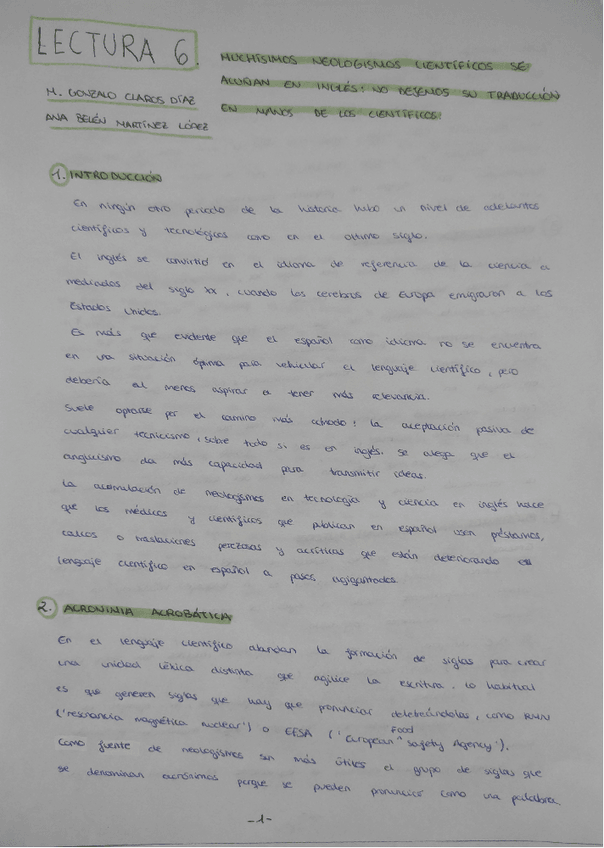 LECTURA 6.
MUCHÍSIMOS NEOLOGISMOS CIENTÍFICOS SE
ACUÑAN EN INGLÉS: NO DEJEMOS SU TRADUCCIÓN
EN MANOS DE LOS CIENTÍFICOS.
M. GONZALO CLAROS DÍAZ
ANA BELÉN MARTÍNEZ LÓPEZ
1. INTRODUCCIÓN
En ningún otro periodo de la historia hubo un nivel de adelantos
científicos y tecnológicos como en el último siglo.
El inglés se convirtió en el idioma de referencia de la ciencia a
mediados del siglo XX, cuando los cerebros de Europa emigraron a los
Estados Unidos.
Es más que evidente que el español como idioma no se encuentra
en una situación óptima para vehicular el lenguaje científico, pero
debería al menos aspirar a tener más relevancia.
Suele optarse por el camino más cómodo: la aceptación pasiva de
cualquier tecnicismo, sobre todo si es en inglés. Se alega que el
anglicismo da más capacidad para transmitir ideas.
La acumulación de neologismos en tecnología y ciencia en inglés hace
que los médicos y científicos que publican en español usen préstamos,
calcos o traslaciones perezosas y acríticas que están deteriorando el
lenguaje científico en español a pasos agigantados.
2. ACRONIMIA ACROBÁTICA
En el lenguaje científico abundan la formación de siglas para crear
una unidad léxica distinta que agilice la escritura. Lo habitual
es que generen siglas que hay que pronunciar deletreándolas, como RMN
('resonancia magnética nuclear') o EFSA ('European Food Safety Agency').
Como fuente de neologismos son más útiles el grupo de siglas que
se denominan acrónimos porque se pueden pronunciar como una palabra.
-1-